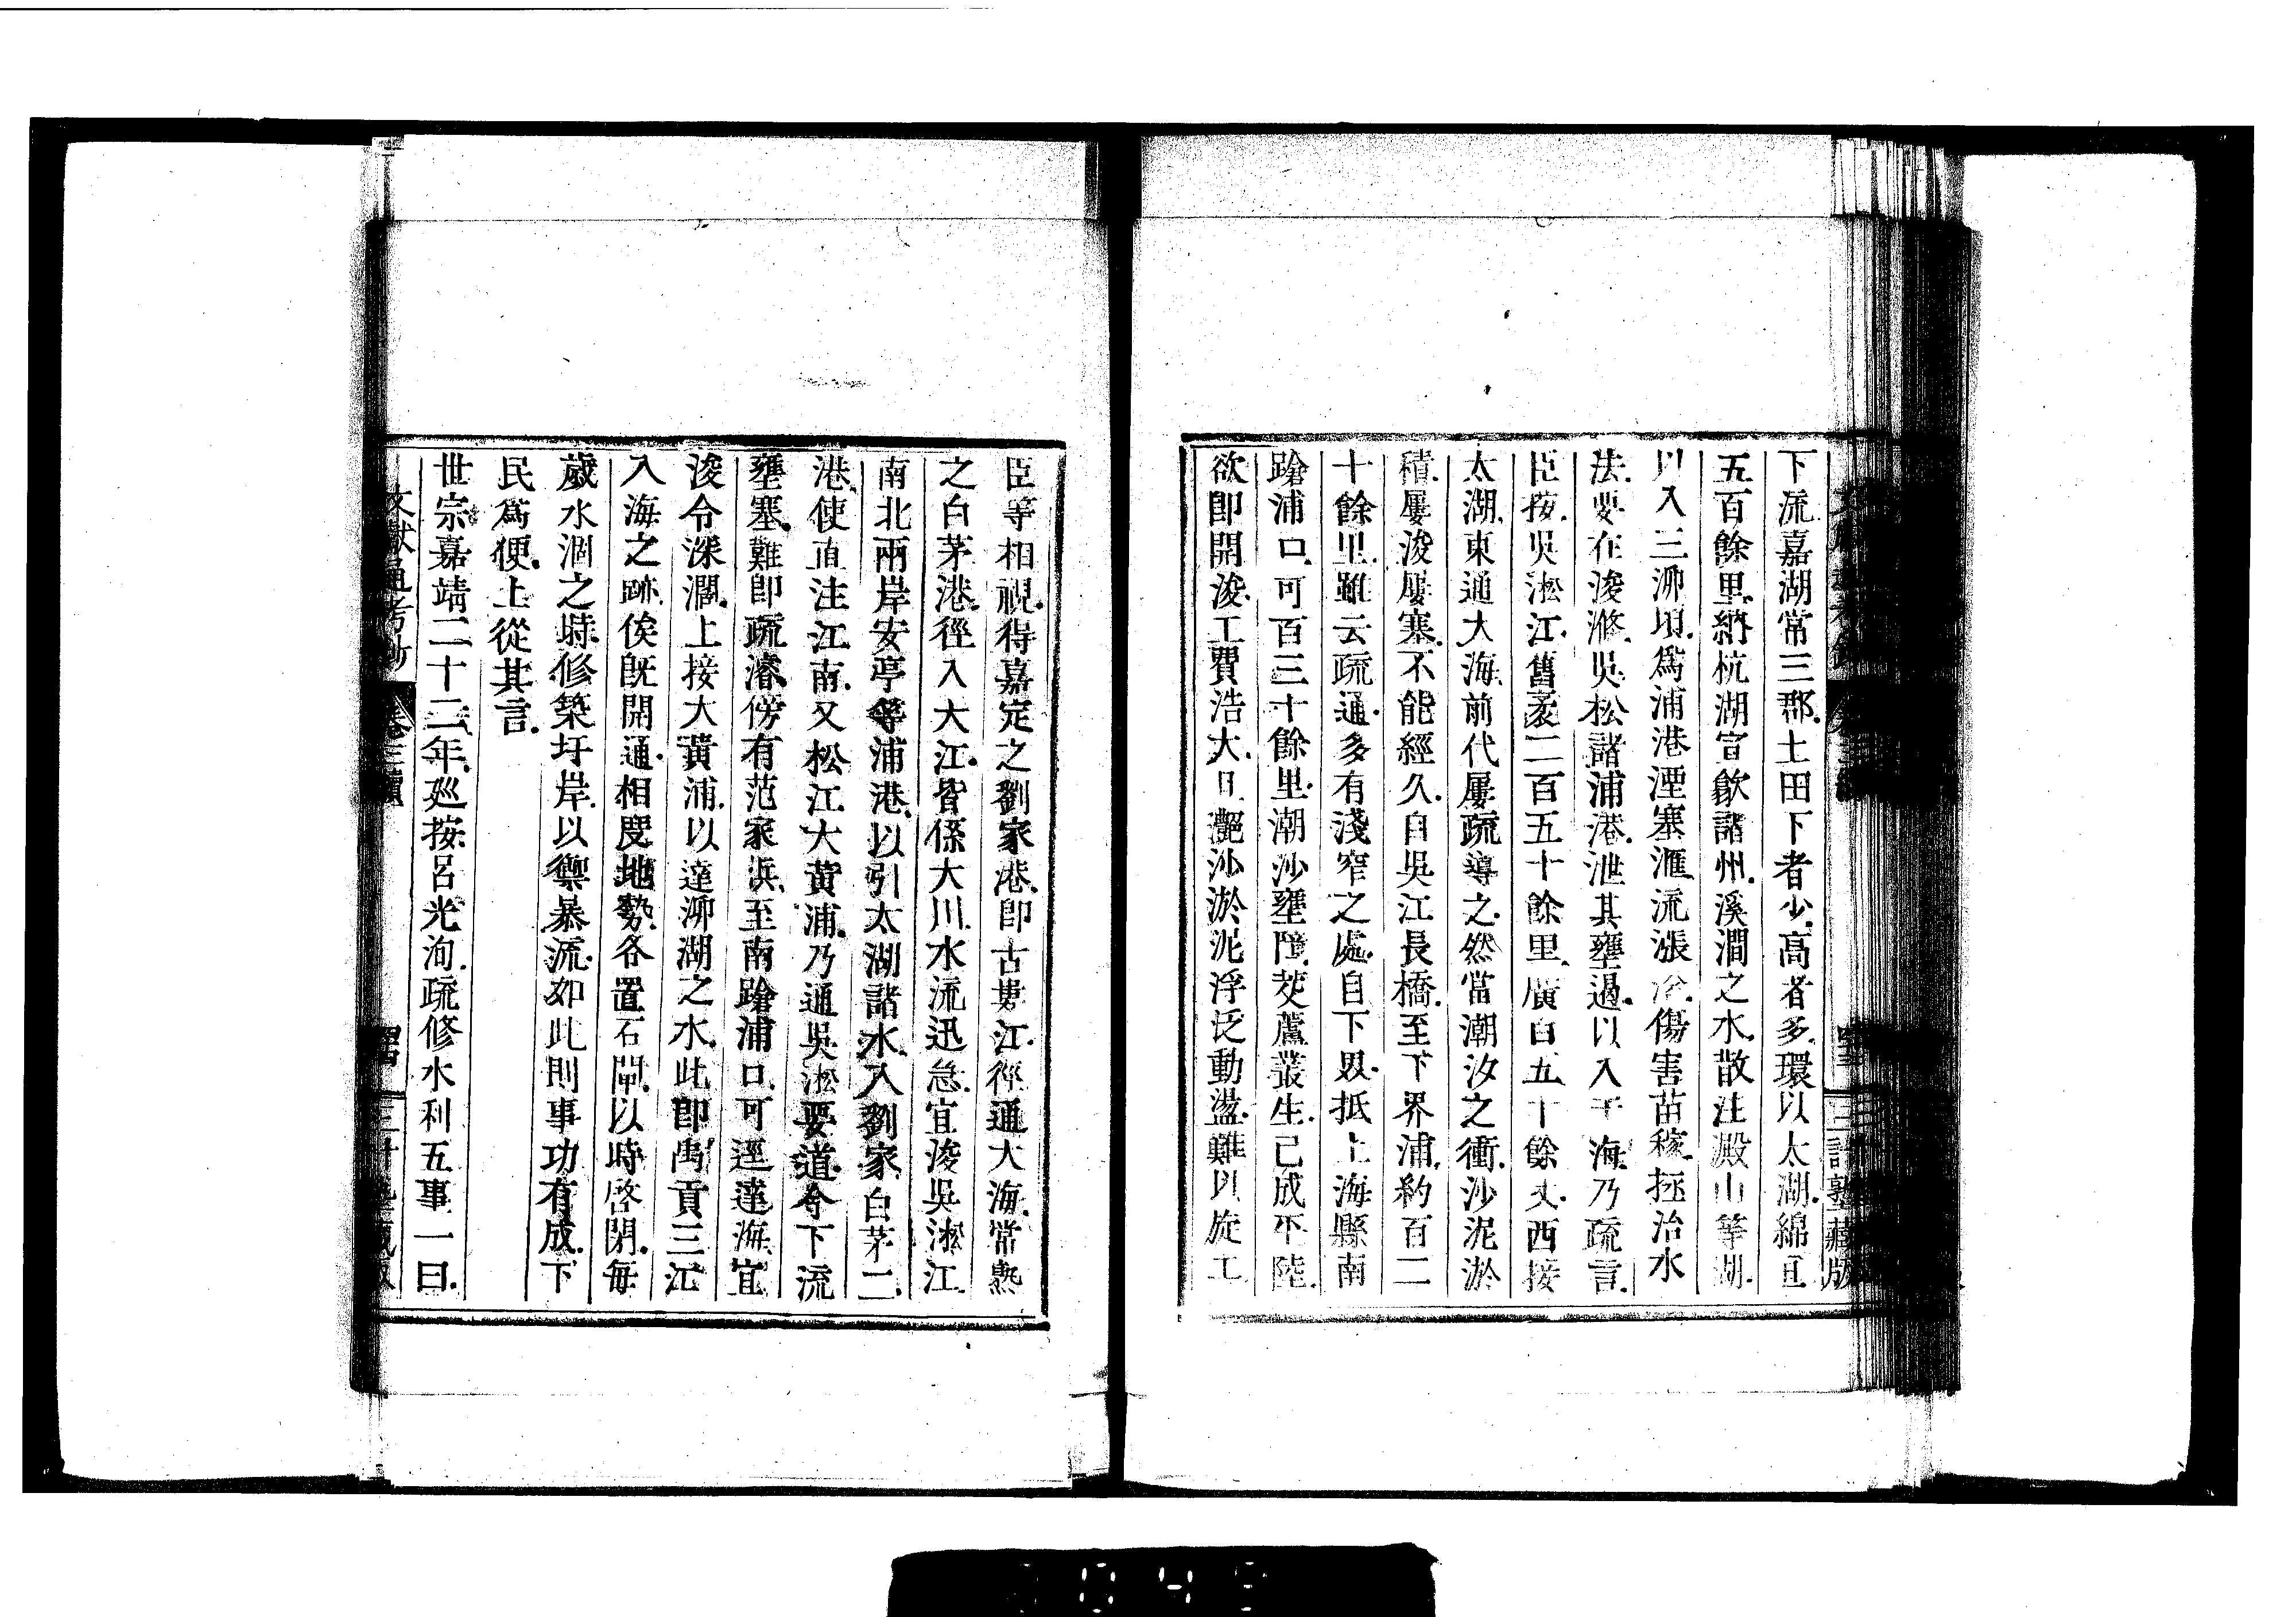 下流嘉湖常三郡土田下者少高者多環以太湖綿亘
五百餘里納杭湖宣歙諸州溪澗之水散注澱山等湖
以入三泖頃爲浦港湮塞滙流漲溢傷害苗稼拯治水
法要在浚滌吳松諸浦港泄其壅遏以入于海乃疏言
臣按吳淞江舊袤二百五十餘里廣百五十餘丈西接
太湖東通大海前代屢疏導之然當潮汐之衝沙泥淤
積屢浚屢塞不能經久自吳江長橋至下界浦約百二
十餘里雖云疏通多有淺窄之處自下界抵上海縣南
蹌浦口可百三十餘里潮沙壅障茭蘆叢生已成平陸
欲即開浚工費浩大且灩沙淤泥浮泛動盪難以旋工
三計塾藏版
臣等相視得嘉定之劉家港即古婁江徑通大海常熟
之白茅港徑入大江皆係大川水流迅急宜浚吳淞江
南北兩岸安亭等浦港以引太湖諸水入劉家白茅二
港使直注江南又松江大黃浦乃通吳淞要道今下流
壅塞難即疏濬傍有范家浜至南蹌浦口可逕達海宜
浚令深濶上接大黃浦以達泖湖之水此即禹貢三江
入海之跡俟既開通相度地勢各置石閘以時啓閉每
歲水涸之時修築圩岸以禦暴流如此則事功有成下
民爲便上從其言
世宗嘉靖二十二年廵按呂光洵疏修水利五事一曰
文獻通考鈔 卷三續